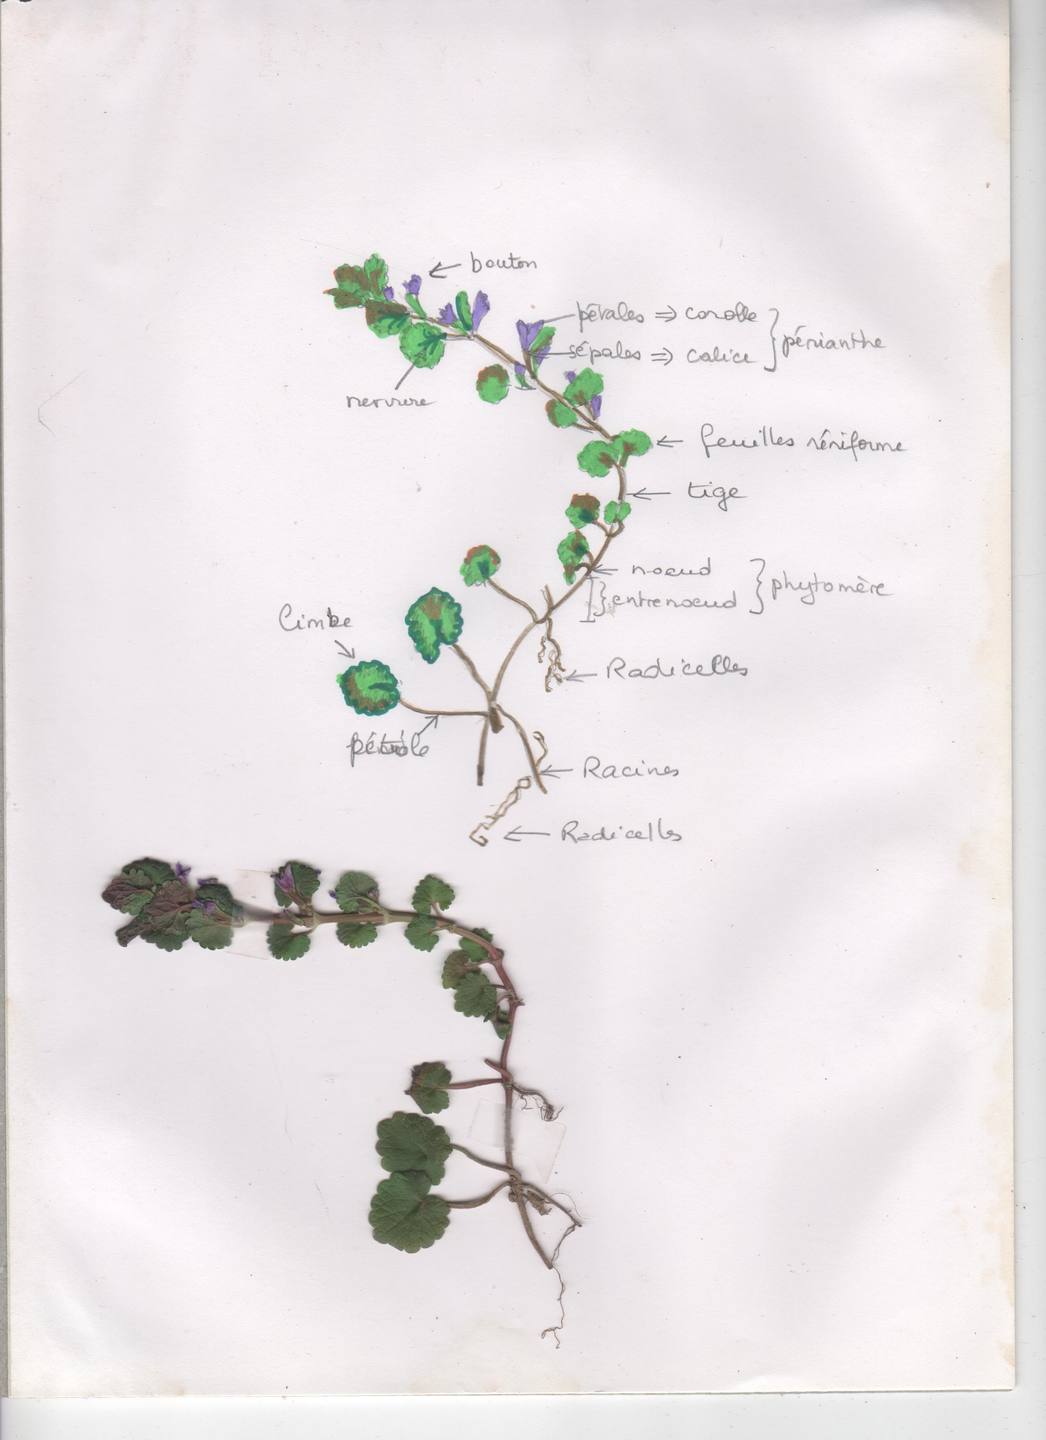 bouton
pétales => corolle } périanthe
sépales => calice
nervure
feuilles réniforme
tige
noeud } phytomère
} entrenoeud
limbe
Radicelles
pétiole
Racines
Radicelles